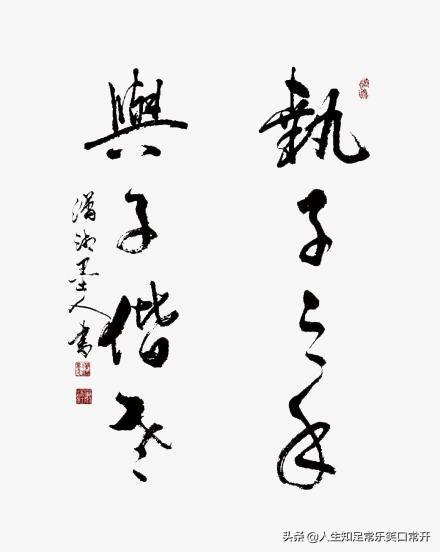 執子之手
與子偕老
瀟湘墨人書
头条 @人生知足常乐笑口常开